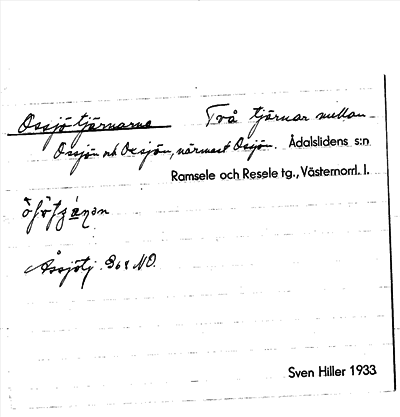 Ossjötjärnarna Två tjärnar mellan
Ossjön och Ocksjön, närmast Ossjön. Ådalslidens s:n
Ramsele och Resele tg., Västernorrl. l.
Åssjötj. 96 r NO.
Sven Hiller 1933